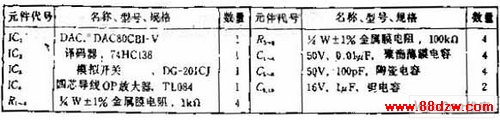 元件代号 名称、型号、规格 数量 元件代号 名称、型号、规格 数量
IC₁ DAC, DAC80CBI-V 1 ¼W±1%金属膜电阻, 100kΩ 4
IC₂ 译码器, 74HC138 1 50V, 0.01μF, 聚酯薄膜电容 4
模拟开关, DG-201CJ 50V, 100pF, 陶瓷电容 4
四芯导线OP放大器, TL084 1 16V, 1μF, 钽电容 2
¼W±1%金属膜电阻, 1kΩ 4
www.88dzw.com